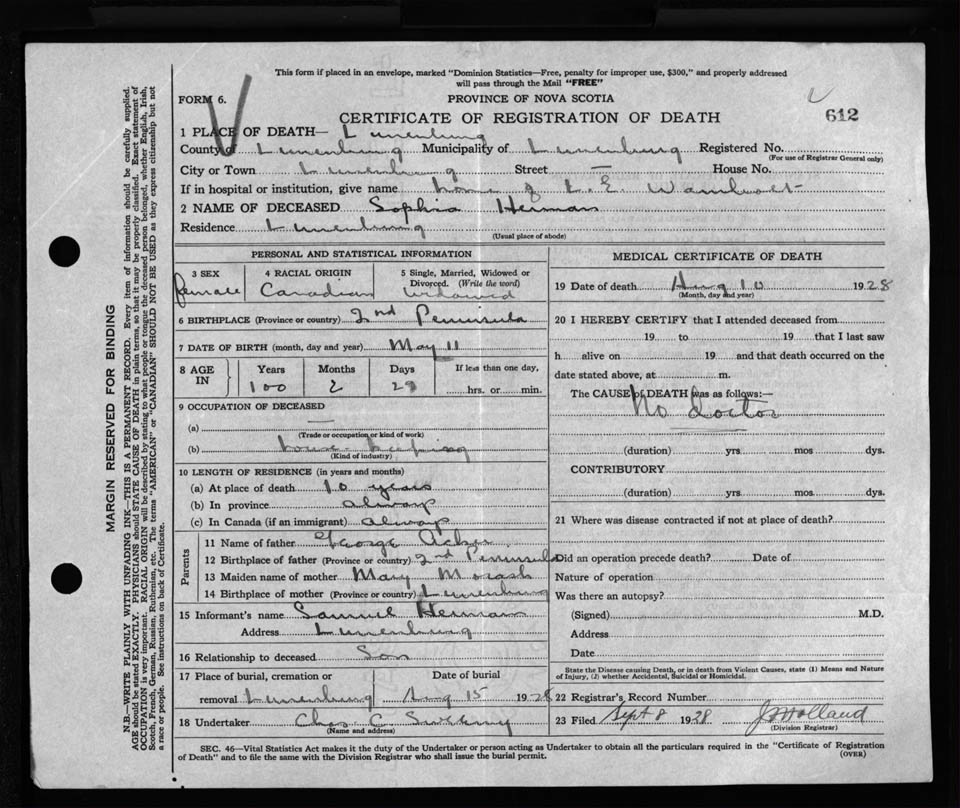 This form if placed in an envelope, marked "Dominion Statistics—Free, penalty for improper use, $300," and properly addressed
will pass through the Mail "FREE"
FORM 6.
PROVINCE OF NOVA SCOTIA
CERTIFICATE OF REGISTRATION OF DEATH
612
1 PLACE OF DEATH— Lunenburg
County of Lunenburg Municipality of Lunenburg Registered No.
(For use of Registrar General only)
City or Town Lunenburg Street — House No.
If in hospital or institution, give name home of L. E. Wambolt
2 NAME OF DECEASED Sophia Herman
Residence Lunenburg
(Usual place of abode)
PERSONAL AND STATISTICAL INFORMATION
3 SEX female
4 RACIAL ORIGIN Canadian
5 Single, Married, Widowed or
Divorced. (Write the word)
Widowed
6 BIRTHPLACE (Province or country) 2nd Peninsula
7 DATE OF BIRTH (month, day and year) May 11
8 AGE IN Years Months Days If less than one day,
100 2 28 hrs. or min.
9 OCCUPATION OF DECEASED
(a) —
(Trade or occupation or kind of work)
(b) house keeping
(Kind of industry)
10 LENGTH OF RESIDENCE (in years and months)
(a) At place of death 10 years
(b) In province always
(c) In Canada (if an immigrant) always
Parents
11 Name of father George Acker
12 Birthplace of father (Province or country) 2nd Peninsula
13 Maiden name of mother Mary Morash
14 Birthplace of mother (Province or country) Lunenburg
15 Informant's name Samuel Herman
Address Lunenburg
16 Relationship to deceased Son
17 Place of burial, cremation or Date of burial
removal Lunenburg Aug 15 1928
18 Undertaker Chas C Sweeny
(Name and address)
MEDICAL CERTIFICATE OF DEATH
19 Date of death Aug 10 1928
(Month, day and year)
20 I HEREBY CERTIFY that I attended deceased from
19 to 19 that I last saw
h alive on 19 and that death occurred on the
date stated above, at m.
The CAUSE of DEATH was as follows:—
No doctor
(duration) yrs. mos dys.
CONTRIBUTORY
(duration) yrs. mos. dys.
21 Where was disease contracted if not at place of death?
Did an operation precede death? Date of
Nature of operation
Was there an autopsy?
(Signed) M.D.
Address
Date
State the Disease causing Death, or in death from Violent Causes, state (1) Means and Nature
of Injury, (2) whether Accidental, Suicidal or Homicidal.
22 Registrar's Record Number
23 Filed Sept 8 1928 Holland
(Division Registrar)
SEC. 46—Vital Statistics Act makes it the duty of the Undertaker or person acting as Undertaker to obtain all the particulars required in the "Certificate of Registration
of Death" and to file the same with the Division Registrar who shall issue the burial permit.
(OVER)
MARGIN RESERVED FOR BINDING
N.B.—WRITE PLAINLY WITH UNFADING INK—THIS IS A PERMANENT RECORD. Every item of information should be carefully supplied.
AGE should be stated EXACTLY. PHYSICIANS should STATE CAUSE OF DEATH in plain terms, so that it may be properly classified. Exact statement of
OCCUPATION is very important. RACIAL ORIGIN will be described by stating to what people or tongue the deceased person belonged, whether English, Irish,
Scotch, French, German, Russian, Ruthenian, etc. The terms "AMERICAN" or "CANADIAN" SHOULD NOT BE USED as they express citizenship but not
a race or people. See instructions on back of Certificate.